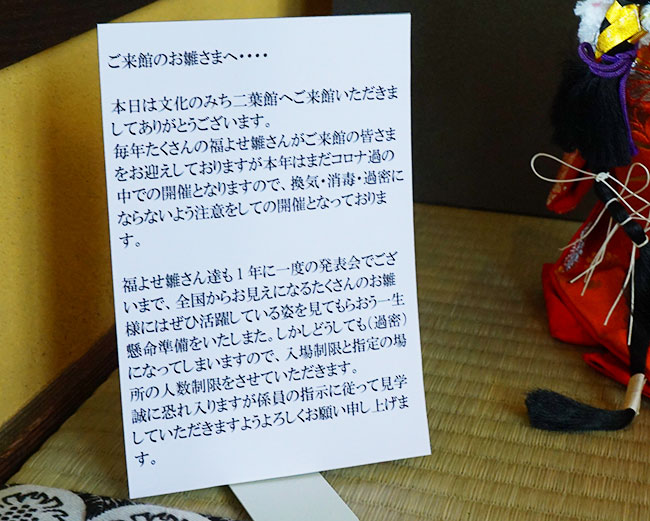 ご来館のお雛さまへ・・・・
本日は文化のみち二葉館へご来館いただきま
してありがとうございます。
毎年たくさんの福よせ雛さんがご来館の皆さま
をお迎えしておりますが本年はまだコロナ過の
中での開催となりますので、換気・消毒・過密に
ならないよう注意をしての開催となっておりま
す。
福よせ雛さん達も1年に一度の発表会でござ
いまで、全国からお見えになるたくさんのお雛
様にはぜひ活躍している姿を見てもらおう一生
懸命準備をいたしまた。しかしどうしても（過密）
になってしまいますので、入場制限と指定の場
所の人数制限をさせていただきます。
誠に恐れ入りますが係員の指示に従って見学
していただきますようよろしくお願い申し上げま
す。